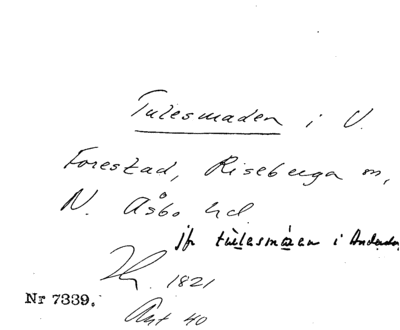 Tulesmaden i V.
Forestad, Riseberga m,
N. Åsbo hd.
jfr tulesmåren i
1821
Nr 7339.
Ant 40